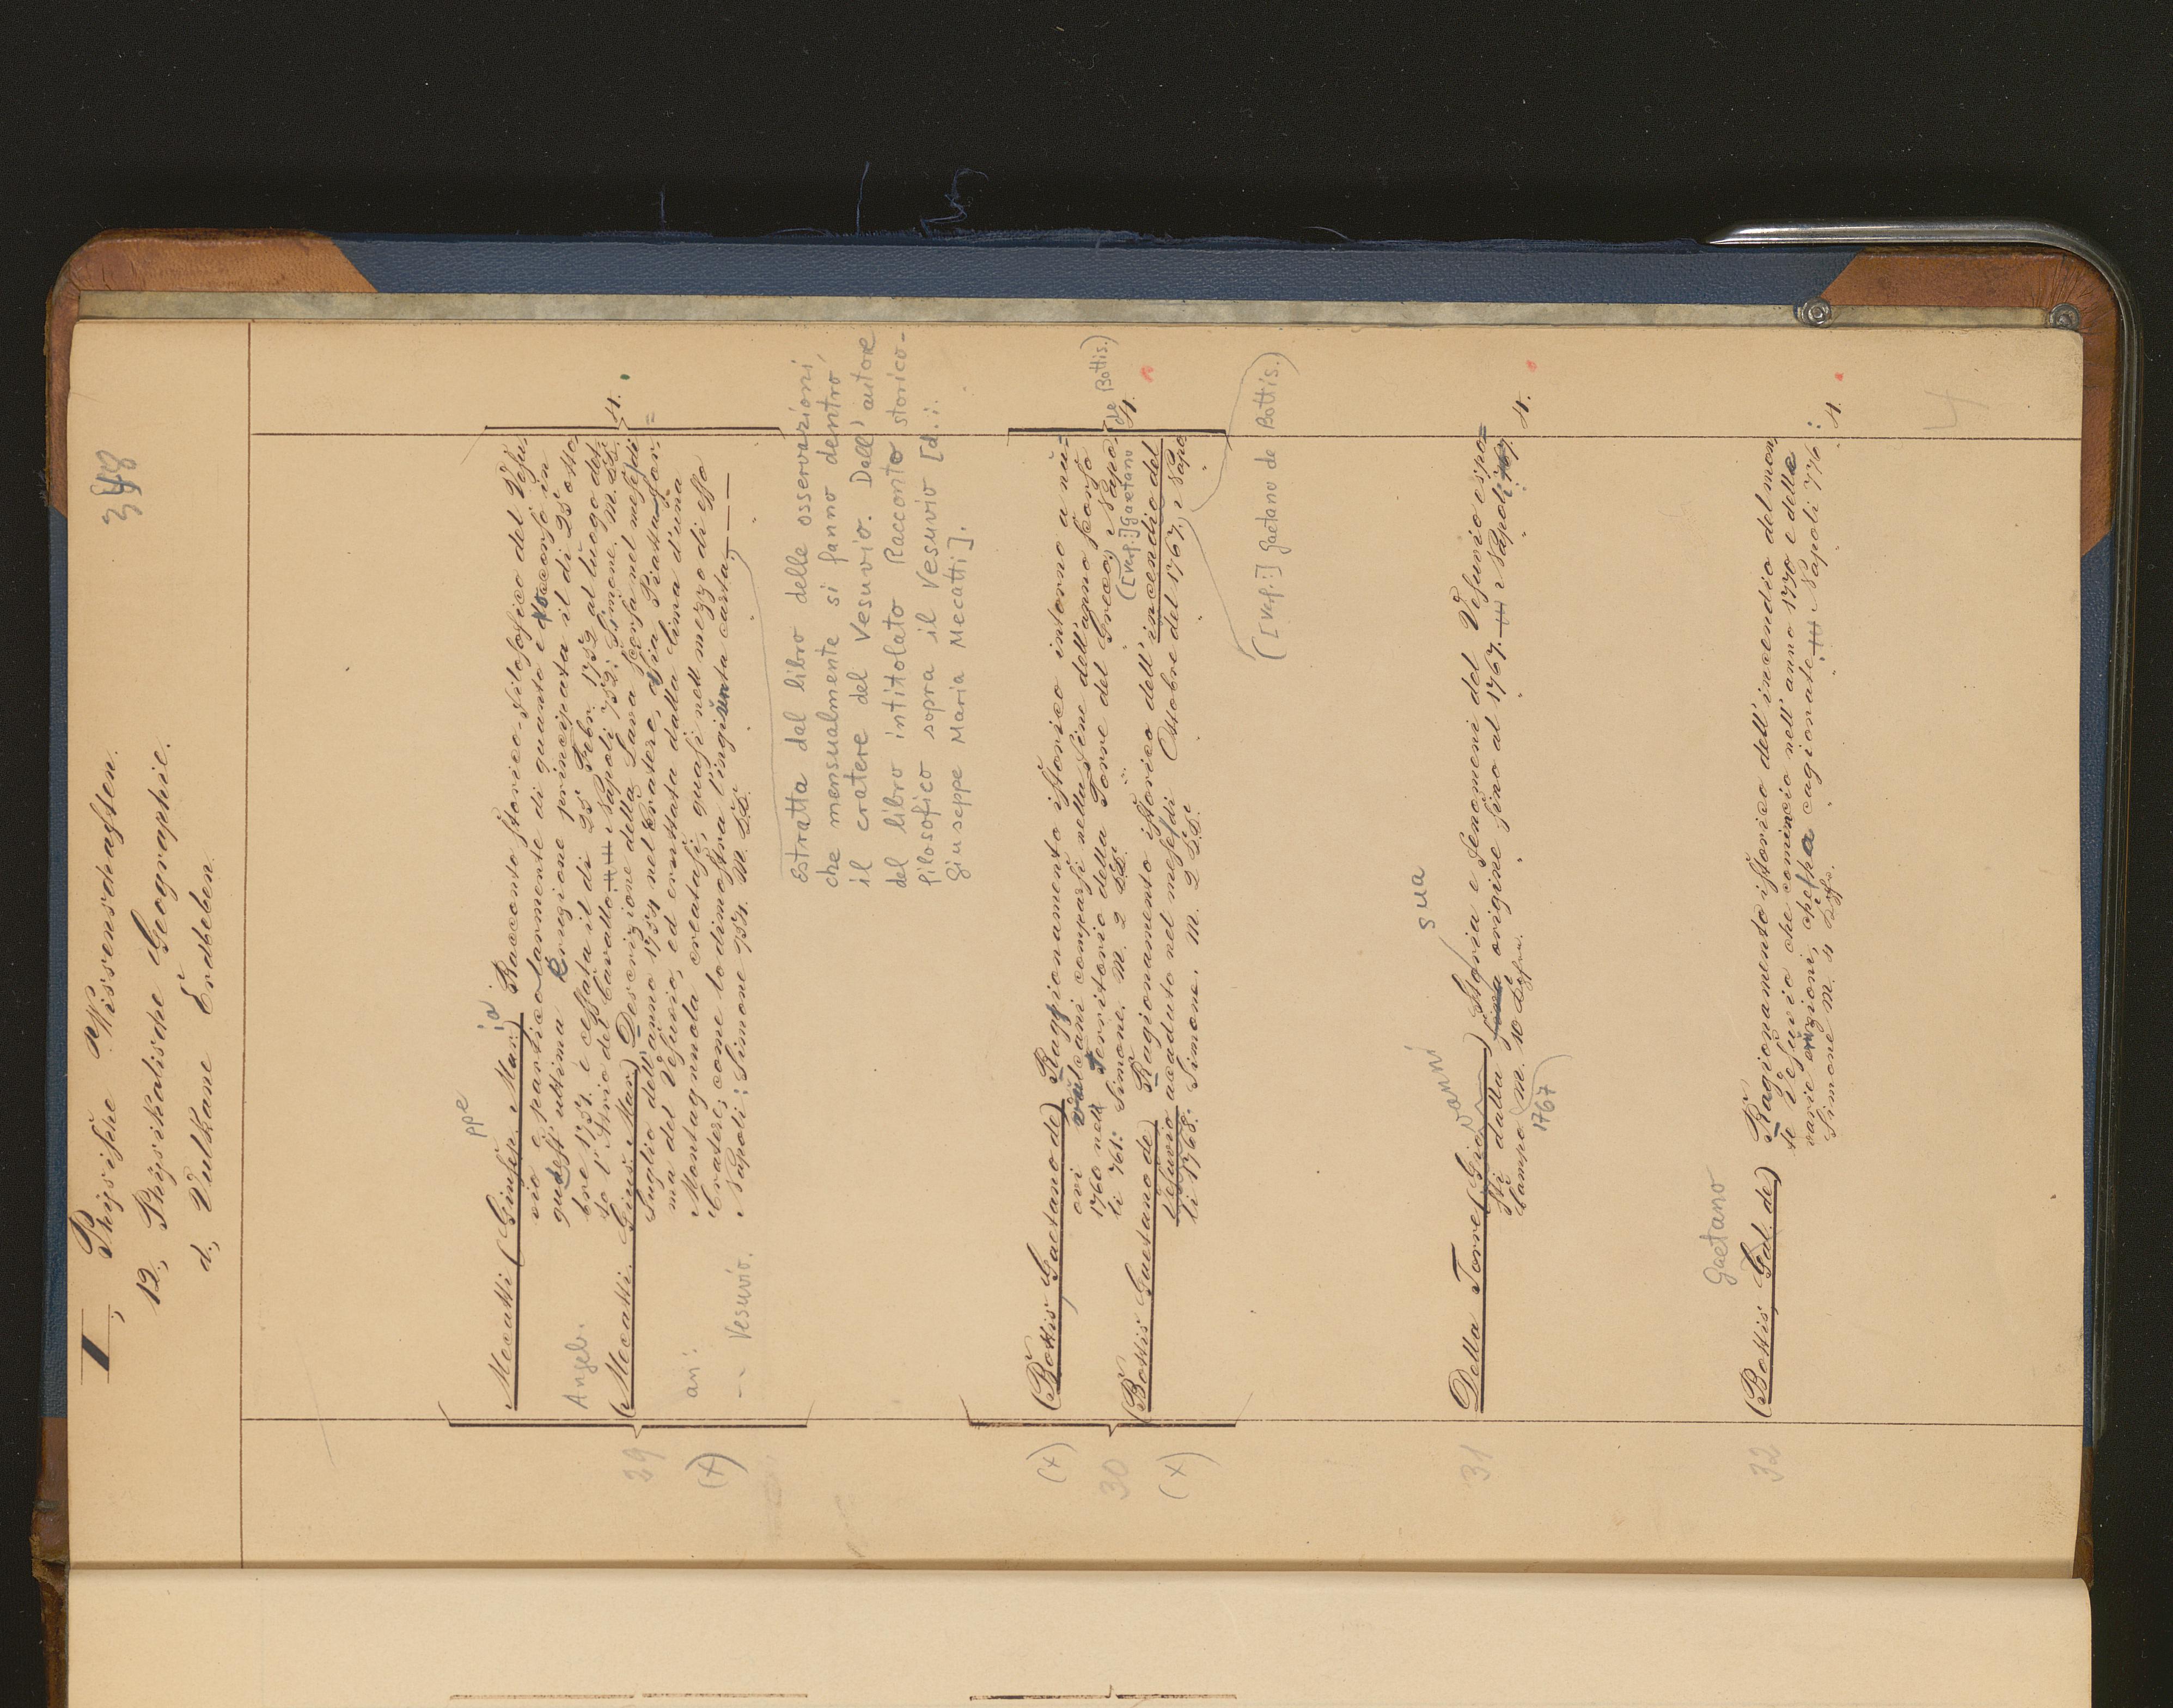 I, Physische Wissenschaften.
12, Physikalische Geographie.
d, Vulkane Erdbeben
348
ppe ia
Mecatti (Giusep. Mar.) Racconto storico-filosofico del Vesu-
vio e particolarmente di quanto è occorso in
quest'ultima Eruzione principata il dì 25 otto
bre 1751. è cessata il dì 25 Febr. 1752 al luogo det-
to l'Atrio del Cavallo Napoli 752: Simone. M. DD.
4.
Angeb.
29
(Mecatti. Gius. Mar.) Descrizione della Lava scorsa nel mese di
Luglio dell'anno 1754 nel Cratere, ossia Piatta-for=
ma del Vesuvio, ed eruttata dalla Cima d'una
an:
Montagnuola creatasi, quasi nell mezzo di esso
(x)
Cratere; come lo dimostra l'ingiunta carta,
Vesuvio.
Napoli: Simone 754. M. DD.
Estratta dal libro delle osservazioni,
che mensualmente si fanno dentro
il cratere del Vesuvio. Dall' autore
del libro intitolato Racconto storico-
filosofico sopra il Vesuvio [d. i.
Giuseppe Maria Mecatti].
(x)
(Bottis Gaetano de) Ragionamento istorico intorno a nu=
ovi vulcani comparsi nella fine dell'anno scorso
1760 nell Territorio della Torre del Greco, Napo
li 761: Simone. M. 2 DD.
([Verf.:] Gaetano de Bottis.)
4.
30
(Bottis Gaetano de) Ragionamento istorico dell'incendio del
Vesuvio accaduto nel mese di Ottobre del 1767, Napo
(x)
li 1768: Simone. M. 2 DD.
([Verf.:] Gaetano de Bottis.)
vanni sua
31
Della Torre (Gio.) Storia e Fenomeni del Vesuvio espo=
sti dalla origine sino al 1767. Napoli 767.
Campo M. 10
4.
1767
Gaetano
32
(Bottis, Gal. de) Ragionamento istorico dell'incendio del mon
te Vesuvio che cominciò nell'anno 1770 e delle
varie eruzioni, che ha cagionate Napoli 776:
Simone M. 4
4.
4